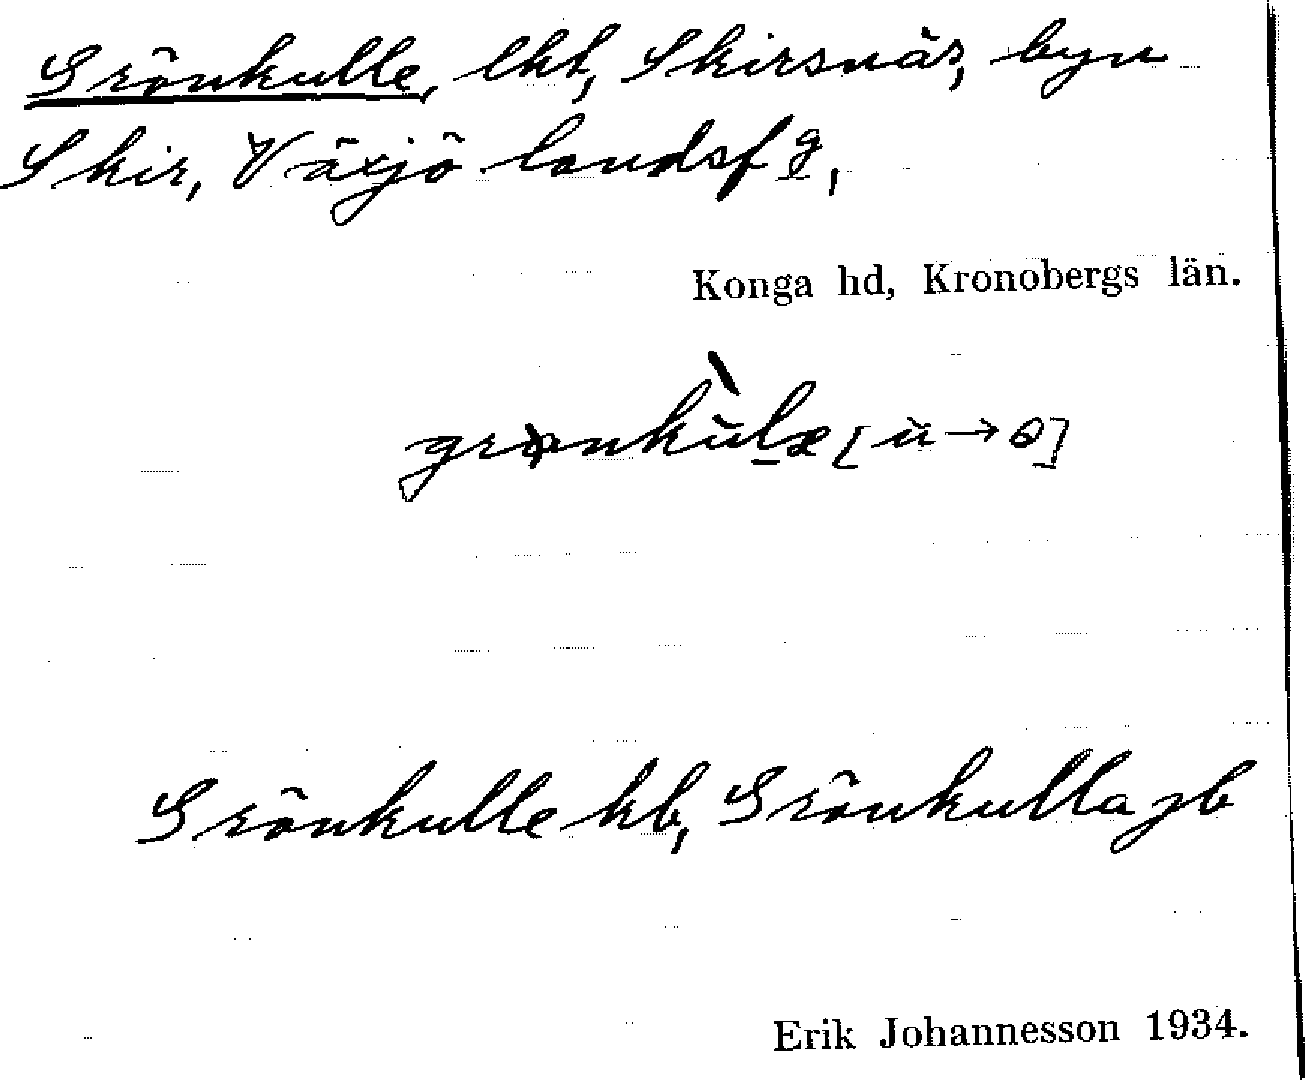 Grönkulle, lht, Skirsnäs, byn
Skir, Växjö landsfg,
Konga hd, Kronobergs län.
Grönkulle kb, Grönkulla jb
Erik Johannesson 1934.